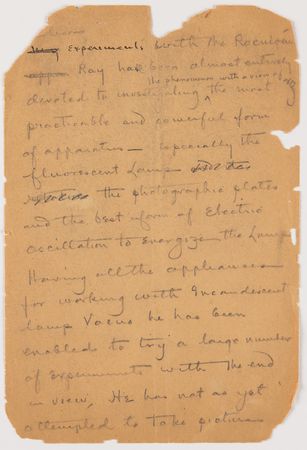 experiments with the Roentgen
Ray has been almost entirely
the phenomenon with a view of
devoted to investigating the most
practicable and powerful form
of apparatus — especially the
fluorescent Lamp
the photographic plates
and the best form of Electric
oscillation to Energize the Lamp
Having all the appliances
for working with Incandescent
lamp Vacua he has been
enabled to try a large number
of experiments with the end
in view, He has not as yet
attempted to take pictures